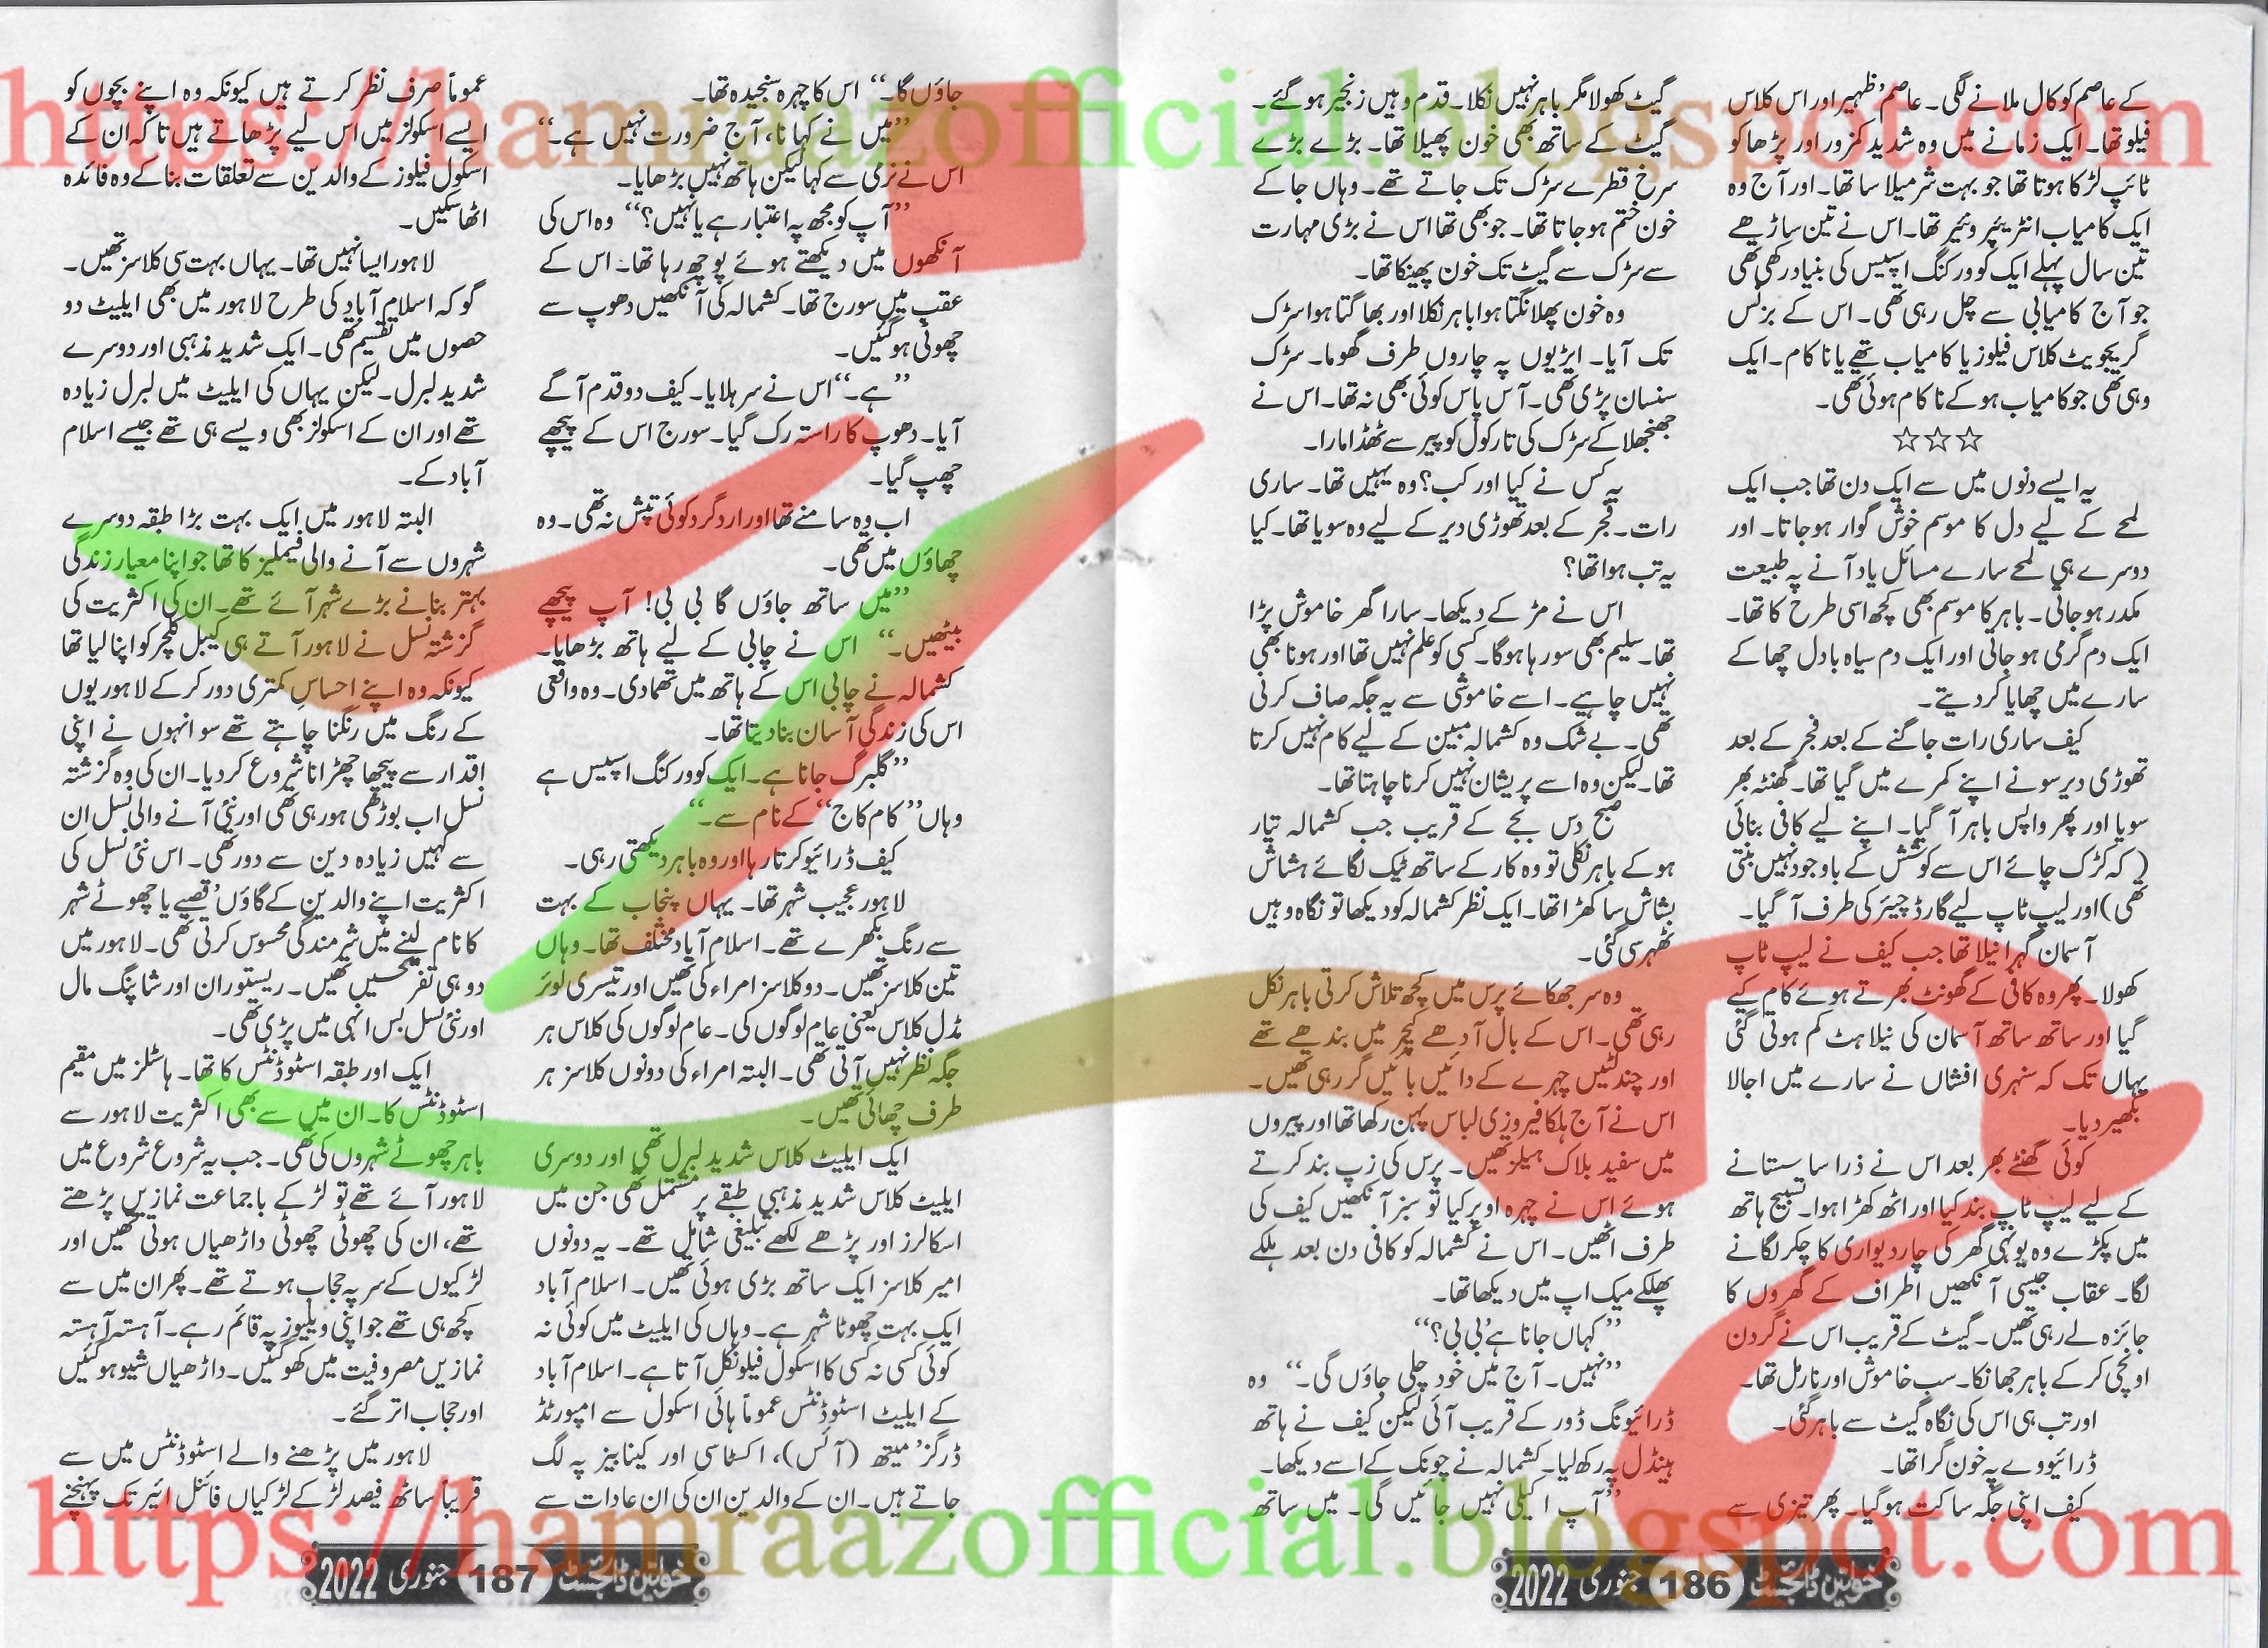 https://hamraazofficial.blogspot.com
کے عاصم کو کال ملانے لگی۔ عاصم ظہیر اور اس کلاس
فیلو تھا۔ ایک زمانے میں وہ شدید کمزور اور پڑھا کو
ٹائپ لڑکا ہوتا تھا جو بہت شرمیلا سا تھا۔ اور آج وہ
ایک کامیاب انٹرپیئر وئیر تھا۔ اس نے تین ساڑھے
تین سال پہلے ایک کو ورکنگ اسپیس کی بنیاد رکھی تھی
جو آج کامیابی سے چل رہی تھی۔ اس کے بزنس
گریجویٹ کلاس فیلوز یا کامیاب تھے یا ناکام۔ ایک
وہی تھی جو کامیاب ہو کے ناکام ہوئی تھی۔
☆☆☆
یہ ایسے دنوں میں سے ایک دن تھا جب ایک
لمحے کے لیے دل کا موسم خوش گوار ہو جاتا۔ اور
دوسرے ہی لمحے سارے مسائل یاد آنے پہ طبیعت
مکدر ہو جاتی۔ باہر کا موسم بھی کچھ اسی طرح کا تھا۔
ایک دم گرمی ہو جاتی اور ایک دم سیاہ بادل چھا کے
سارے میں چھایا کر دیتے۔
کیف ساری رات جاگنے کے بعد فجر کے بعد
تھوڑی دیر سونے اپنے کمرے میں گیا تھا۔ گھنٹہ بھر
سویا اور پھر واپس باہر آ گیا۔ اپنے لیے کافی بنائی
( کہ کڑک چائے اس سے کوشش کے باوجود نہیں بنتی
تھی) اور لیپ ٹاپ لیے گارڈ چیئر کی طرف آ گیا۔
آسمان گہرا نیلا تھا جب کیف نے لیپ ٹاپ
کھولا۔ پھر وہ کافی کے گھونٹ بھرتے ہوئے کام کیے
گیا اور ساتھ ساتھ آسمان کی نیلاہٹ کم ہوتی گئی
یہاں تک کہ سنہری افشاں نے سارے میں اجالا
بکھیر دیا۔
کوئی گھنٹے بھر بعد اس نے ذرا سا سستانے
کے لیے لیپ ٹاپ بند کیا اور اٹھ کھڑا ہوا۔ تسبیح ہاتھ
میں پکڑے وہ یونہی گھر کی چار دیواری کا چکر لگانے
لگا۔ عقاب جیسی آنکھیں اطراف کے گھروں کا
جائزہ لے رہی تھیں۔ گیٹ کے قریب اس نے گردن
اونچی کر کے باہر جھانکا۔ سب خاموش اور نارمل تھا۔
اور تب ہی اس کی نگاہ گیٹ سے باہر گئی۔
ڈرائیو وے پہ خون گرا تھا۔
کیف اپنی جگہ ساکت ہو گیا۔ پھر تیزی سے
گیٹ کھولا مگر باہر نہیں نکلا۔ قدم وہیں زنجیر ہو گئے۔
گیٹ کے ساتھ بھی خون پھیلا تھا۔ بڑے بڑے
سرخ قطرے سڑک تک جاتے تھے۔ وہاں جا کے
خون ختم ہو جاتا تھا۔ جو بھی تھا اس نے بڑی مہارت
سے سڑک سے گیٹ تک خون پھینکا تھا۔
وہ خون پھلانگتا ہوا باہر نکلا اور بھاگتا ہوا سڑک
تک آیا۔ ایڑیوں پہ چاروں طرف گھوما۔ سڑک
سنسان پڑی تھی۔ آس پاس کوئی بھی نہ تھا۔ اس نے
جھنجھلا کے سڑک کی تارکول کو پیر سے ٹھڈا مارا۔
یہ کس نے کیا اور کب؟ وہ یہیں تھا۔ ساری
رات۔ فجر کے بعد تھوڑی دیر کے لیے وہ سویا تھا۔ کیا
یہ تب ہوا تھا؟
اس نے مڑ کے دیکھا۔ سارا گھر خاموش پڑا
تھا۔ سلیم بھی سو رہا ہوگا۔ کسی کو علم نہیں تھا اور ہونا بھی
نہیں چاہیے۔ اسے خاموشی سے یہ جگہ صاف کرنی
تھی۔ بے شک وہ کشمالہ مبین کے لیے کام نہیں کرتا
تھا۔ لیکن وہ اسے پریشان نہیں کرنا چاہتا تھا۔
صبح دس بجے کے قریب جب کشمالہ تیار
ہو کے باہر نکلی تو وہ کار کے ساتھ ٹیک لگائے ہشاش
بشاش سا کھڑا تھا۔ ایک نظر کشمالہ کو دیکھا تو نگاہ وہیں
ٹھہر سی گئی۔
وہ سر جھکائے پرس میں کچھ تلاش کرتی باہر نکل
رہی تھی۔ اس کے بال آدھے کیچر میں بندھے تھے
اور چند لٹیں چہرے کے دائیں بائیں گر رہی تھیں۔
اس نے آج ہلکا فیروزی لباس پہن رکھا تھا اور پیروں
میں سفید بلاک ہیلز تھیں۔ پرس کی زپ بند کرتے
ہوئے اس نے چہرہ اوپر کیا تو سبز آنکھیں کیف کی
طرف اٹھیں۔ اس نے کشمالہ کو کافی دن بعد ہلکے
پھلکے میک اپ میں دیکھا تھا۔
’’کہاں جانا ہے، بی بی؟‘‘
’’نہیں۔ آج میں خود چلی جاؤں گی۔‘‘ وہ
ڈرائیونگ ڈور کے قریب آئی لیکن کیف نے ہاتھ
ہینڈل پہ رکھ لیا۔ کشمالہ نے چونک کے اسے دیکھا۔
’’آپ اکیلی نہیں جائیں گی۔ میں ساتھ
خواتین ڈائجسٹ 186 جنوری 2022
جاؤں گا۔‘‘ اس کا چہرہ سنجیدہ تھا۔
’’میں نے کہا نا، آج ضرورت نہیں ہے۔‘‘
اس نے نرمی سے کہا لیکن ہاتھ نہیں بڑھایا۔
’’آپ کو مجھ پہ اعتبار ہے یا نہیں؟‘‘ وہ اس کی
آنکھوں میں دیکھتے ہوئے پوچھ رہا تھا۔ اس کے
عقب میں سورج تھا۔ کشمالہ کی آنکھیں دھوپ سے
چھوٹی ہو گئیں۔
’’ہے۔‘‘ اس نے سر ہلایا۔ کیف دو قدم آگے
آیا۔ دھوپ کا راستہ رک گیا۔ سورج اس کے پیچھے
چھپ گیا۔
اب وہ سامنے تھا اور ارد گرد کوئی تپش نہ تھی۔ وہ
چھاؤں میں تھی۔
’’میں ساتھ جاؤں گا بی بی! آپ پیچھے
بیٹھیں۔‘‘ اس نے چابی کے لیے ہاتھ بڑھایا۔
کشمالہ نے چابی اس کے ہاتھ میں تھما دی۔ وہ واقعی
اس کی زندگی آسان بنا دیتا تھا۔
’’گلبرگ جانا ہے۔ ایک کو ورکنگ اسپیس ہے
وہاں ’’کام کاج‘‘ کے نام سے۔‘‘
کیف ڈرائیو کرتا رہا اور وہ باہر دیکھتی رہی۔
لاہور عجیب شہر تھا۔ یہاں پنجاب کے بہت
سے رنگ بکھرے تھے۔ اسلام آباد مختلف تھا۔ وہاں
تین کلاسز تھیں۔ دو کلاسز امراء کی تھیں اور تیسری لوئر
مڈل کلاس یعنی عام لوگوں کی۔ عام لوگوں کی کلاس ہر
جگہ نظر نہیں آتی تھی۔ البتہ امراء کی دونوں کلاسز ہر
طرف چھائی تھیں۔
ایک ایلیٹ کلاس شدید لبرل تھی اور دوسری
ایلیٹ کلاس شدید مذہبی طبقے پر مشتمل تھی جن میں
اسکالرز اور پڑھے لکھے تبلیغی شامل تھے۔ یہ دونوں
امیر کلاسز ایک ساتھ بڑی ہوئی تھیں۔ اسلام آباد
ایک بہت چھوٹا شہر ہے۔ وہاں کی ایلیٹ میں کوئی نہ
کوئی کسی نہ کسی کا اسکول فیلو نکل آتا ہے۔ اسلام آباد
کے ایلیٹ اسٹوڈنٹس عموماً ہائی اسکول سے امپورٹڈ
ڈرگز، میتھ (آئس)، اکسٹاسی اور کینابیز پہ لگ
جاتے ہیں۔ ان کے والدین ان کی ان عادات سے
عموماً صرف نظر کرتے ہیں کیونکہ وہ اپنے بچوں کو
ایسے اسکولز میں اس لیے پڑھاتے ہیں تاکہ ان کے
اسکول فیلوز کے والدین سے تعلقات بنا کے وہ فائدہ
اٹھا سکیں۔
لاہور ایسا نہیں تھا۔ یہاں بہت سی کلاسز تھیں۔
گو کہ اسلام آباد کی طرح لاہور میں بھی ایلیٹ دو
حصوں میں تقسیم تھی۔ ایک شدید مذہبی اور دوسرے
شدید لبرل۔ لیکن یہاں کی ایلیٹ میں لبرل زیادہ
تھے اور ان کے اسکولز بھی ویسے ہی تھے جیسے اسلام
آباد کے۔
البتہ لاہور میں ایک بہت بڑا طبقہ دوسرے
شہروں سے آنے والی فیملیز کا تھا جو اپنا معیار زندگی
بہتر بنانے بڑے شہر آئے تھے۔ ان کی اکثریت کی
گزشتہ نسل نے لاہور آتے ہی کیبل کلچر کو اپنا لیا تھا
کیونکہ وہ اپنے احساسِ کمتری دور کر کے لاہور یوں
کے رنگ میں رنگنا چاہتے تھے سو انہوں نے اپنی
اقدار سے پیچھا چھڑانا شروع کر دیا۔ ان کی وہ گزشتہ
نسل اب بوڑھی ہو رہی تھی اور نئی آنے والی نسل ان
سے کہیں زیادہ دین سے دور تھی۔ اس نئی نسل کی
اکثریت اپنے والدین کے گاؤں، قصبے یا چھوٹے شہر
کا نام لینے میں شرمندگی محسوس کرتی تھی۔ لاہور میں
دو ہی تفریحیں تھیں۔ ریستوران اور شاپنگ مال
اور نئی نسل بس انہی میں پڑی تھی۔
ایک اور طبقہ اسٹوڈنٹس کا تھا۔ ہاسٹلز میں مقیم
اسٹوڈنٹس کا۔ ان میں سے بھی اکثریت لاہور سے
باہر چھوٹے شہروں کی تھی۔ جب یہ شروع شروع میں
لاہور آئے تھے تو لڑکے باجماعت نمازیں پڑھتے
تھے، ان کی چھوٹی چھوٹی داڑھیاں ہوتی تھیں اور
لڑکیوں کے سر پہ حجاب ہوتے تھے۔ پھر ان میں سے
کچھ ہی تھے جو اپنی ویلیوز پہ قائم رہے۔ آہستہ آہستہ
نمازیں مصروفیت میں کھو گئیں۔ داڑھیاں شیو ہو گئیں
اور حجاب اتر گئے۔
لاہور میں پڑھنے والے اسٹوڈنٹس میں سے
قریباً ساٹھ فیصد لڑکے لڑکیاں فائنل ائیر تک پہنچتے
خواتین ڈائجسٹ 187 جنوری 2022
https://hamraazofficial.blogspot.com